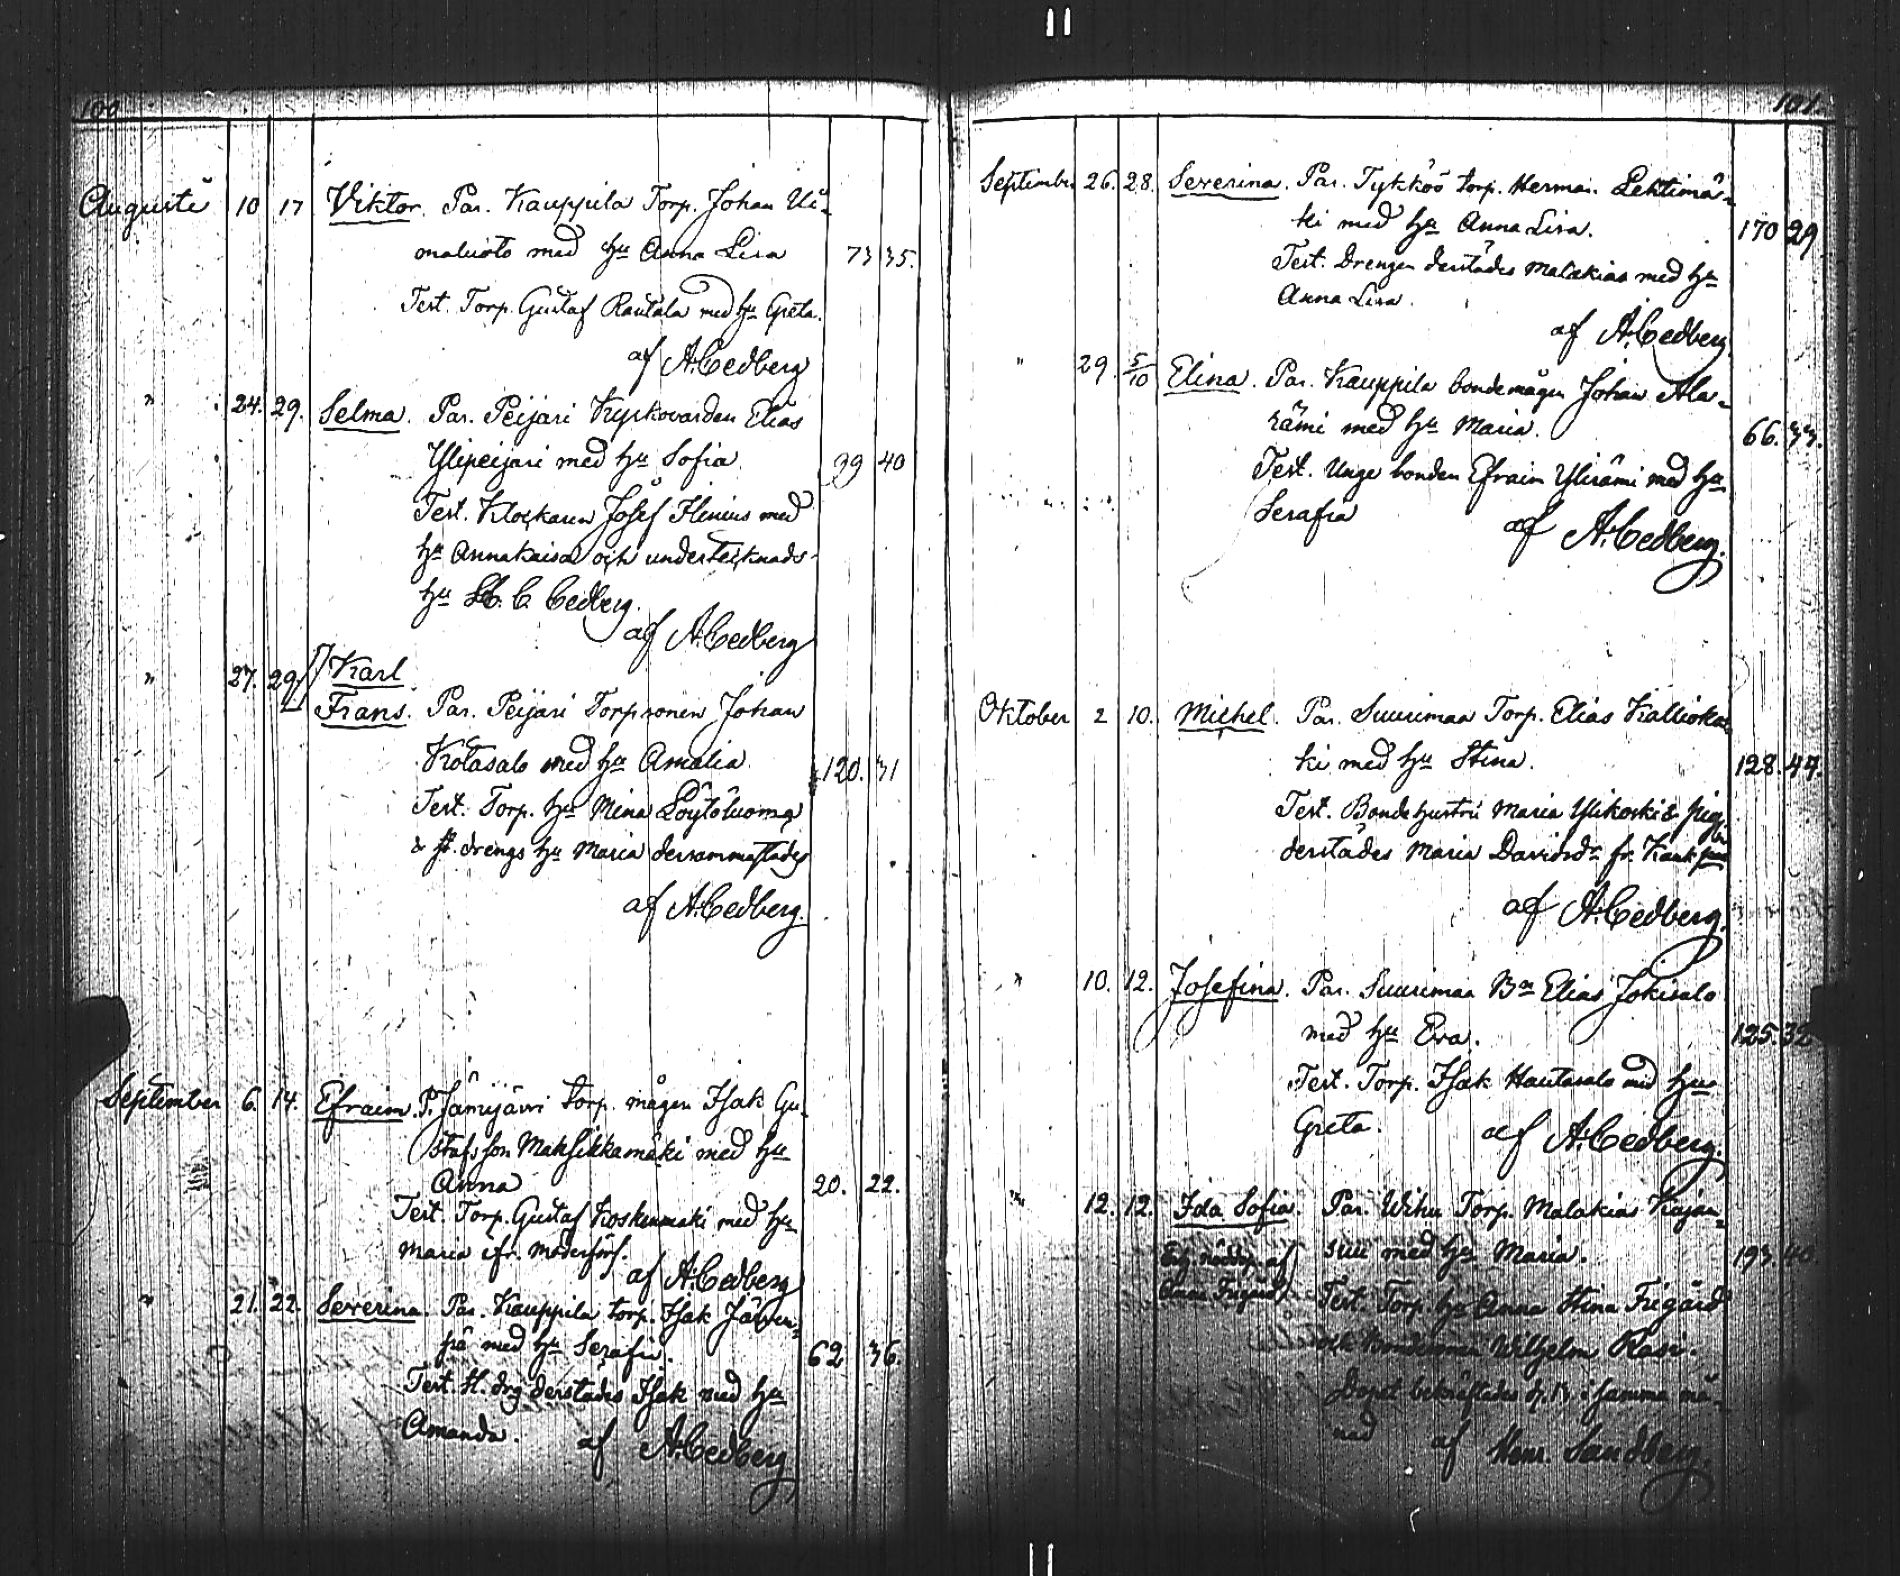 100
Augusti 10 17 Viktor. Par. Kauppila Torp. Johan Uu-
maluoto med hu Anna Lisa 73 35.
Test. Torp. Gustaf Rautala med hu Greta.
af A. Cedberg
" 24. 29. Selma. Par. Peijari Kyrkovärden Elias
Ylipeijari med hu Sofia. 99 40
Test. Klockaren Josef Ilenius med
hu Annakaisa och undertecknads
hu C. Cedberg.
af A. Cedberg
" 27. 29. Karl
Frans. Par. Peijari Torpsonen Johan
Kotasalo med hu Amalia. 120. 31
Test. Torp. hu Mina Löytöluoma
& drengs hu Maria dersammastädes
af A. Cedberg.
September 6. 14. Efraim. P. Jämijärvi torp. mågen Isak Gu-
stafsson Maksikkamäki med hu
Anna 20. 22.
Test. Torp. Gustaf Koskenmäki med hu
Maria
af A. Cedberg
" 21. 22. Severina. Par. Kauppila torp. Isak Järven-
pä med hu Serafia. 62 36.
Test. H. drg derstädes Isak med hu
Amanda. af A. Cedberg
101.
September 26. 28. Severina. Par. Tykköö torp. Herman Lehtimä-
ki med hu Anna Lisa. 170 29
Test. Drengen derstädes Malakias med hu
Anna Lisa.
af A. Cedberg.
" 29. 5/10 Elina. Par. Kauppila bondemågen Johan Ala-
rämi med hu Maria. 66. 33.
Test. Unge bonden Efraim Ylirämi med hu
Serafia af A. Cedberg.
Oktober 2 10. Michel. Par. Suurimaa Torp. Elias Kalliokos-
ki med hu Stina. 128. 44.
Test. Bondehustru Maria Ylikoski & pig.
derstädes Maria Davidsdr fr.
af A. Cedberg.
" 10. 12. Josefina. Par. Suurimaa Bn Elias Jokisalo
med hu Eva. 125. 32
Test. Torp. Isak Hautasalo med hus
Greta. af A. Cedberg.
" 12. 12. Ida Sofia. Par. Wihu Torp. Malakias Kajan-
suu med hu Maria. 193 40.
nöddop. af
Anna Frigård
Test. Torp. hu Anna Stina Frigård
och bondesonen Wilhelm Rasi.
Dopet bekräftades d. 13 i samma må-
nad af Henr. Sandberg.